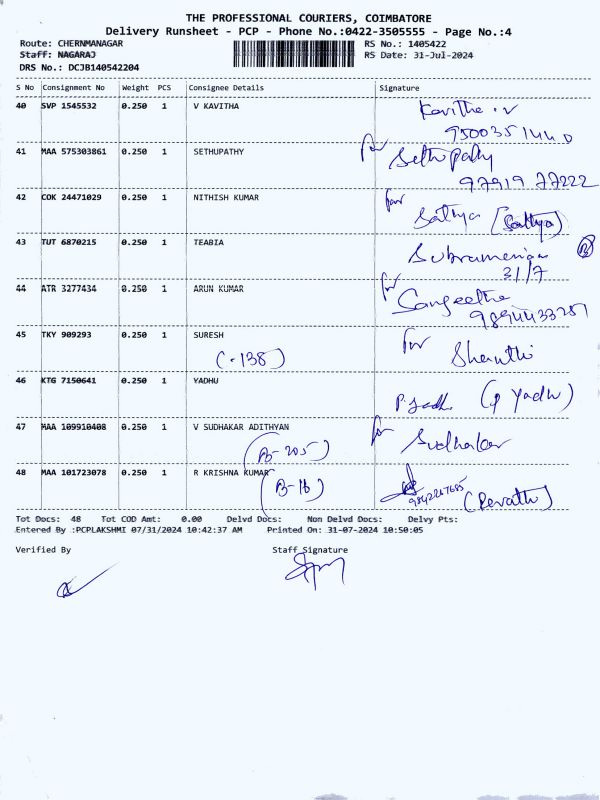 THE PROFESSIONAL COURIERS, COIMBATORE
Delivery Runsheet - PCP - Phone No.:0422-3505555 - Page No.:4
Route: CHERNMANAGAR RS No.: 1405422
Staff: NAGARAJ RS Date: 31-Jul-2024
DRS No.: DCJB140542204
S No Consignment No Weight PCS Consignee Details Signature
40 SVP 1545532 0.250 1 V KAVITHA Kavitha.V
41 MAA 575303861 0.250 1 SETHUPATHY for Sethupathy
97919 77222
42 COK 24471029 0.250 1 NITHISH KUMAR for Sathya (Sathya)
43 TUT 6870215 0.250 1 TEABIA Subramanian
31/7
44 ATR 3277434 0.250 1 ARUN KUMAR for Sangeetha
45 TKY 909293 0.250 1 SURESH for Shanthi
(-138)
46 KTG 7150641 0.250 1 YADHU (P Yadhu)
47 MAA 109910408 0.250 1 V SUDHAKAR ADITHYAN for Sudhakar
(B-205)
48 MAA 101723078 0.250 1 R KRISHNA KUMAR (Revathi)
(B-16)
Tot Docs: 48 Tot COD Amt: 0.00 Delvd Docs: Non Delvd Docs: Delvy Pts:
Entered By :PCPLAKSHMI 07/31/2024 10:42:37 AM Printed On: 31-07-2024 10:50:05
Verified By Staff Signature